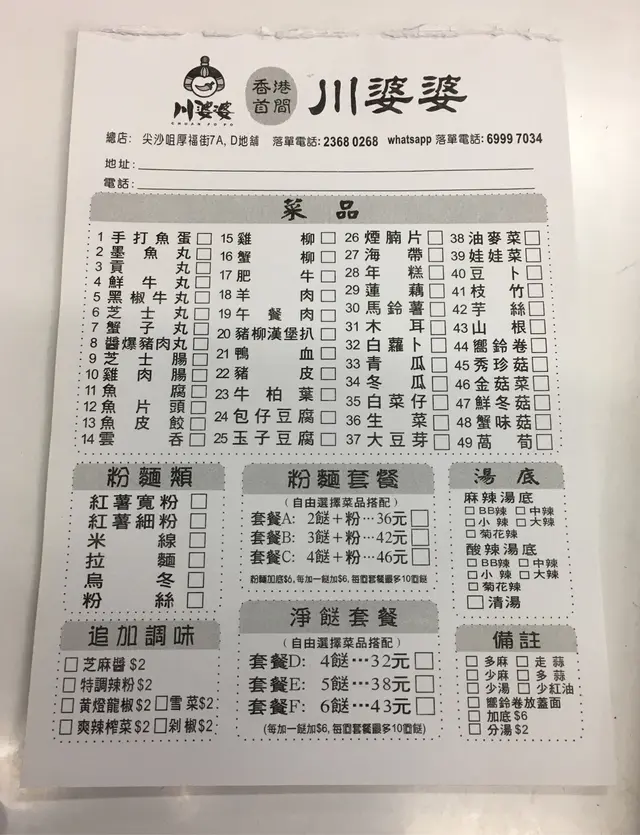 川婆婆
CHUEN PO PO
香港
首間
川婆婆
總店: 尖沙咀厚福街7A, D地舖 落單電話: 2368 0268 whatsapp 落單電話: 6999 7034
地址:
電話:
菜品
1 手打魚蛋 15 雞柳 26 煙腩片 38 油麥菜
2 墨魚丸 16 蟹柳 27 海帶 39 娃娃菜
3 貢丸 17 肥牛 28 年糕 40 豆卜
4 鮮牛丸 18 羊肉 29 蓮藕 41 枝竹
5 黑椒牛丸 19 午餐肉 30 馬鈴薯 42 芋絲
6 芝士丸 20 豬柳漢堡扒 31 木耳 43 山根
7 蟹子丸 21 鴨血 32 白蘿卜 44 嚮鈴卷
8 醬爆豬肉丸 22 豬皮 33 青瓜 45 秀珍菇
9 芝士腸 23 牛柏葉 34 冬瓜 46 金菇菜
10 雞肉腸 24 包仔豆腐 35 白菜仔 47 鮮冬菇
11 魚腐 25 玉子豆腐 36 生菜 48 蟹味菇
12 魚片頭 37 大豆芽 49 萵筍
13 魚皮餃
14 雲吞
粉麵類
紅薯寬粉
紅薯細粉
米線
拉麵
烏冬
粉絲
粉麵套餐
(自由選擇菜品搭配)
套餐A: 2餸+粉…36元
套餐B: 3餸+粉…42元
套餐C: 4餸+粉…46元
粉麵加底$6, 每加一餸$6, 每個套餐最多10個餸
湯底
麻辣湯底
BB辣 中辣
小辣 大辣
菊花辣
酸辣湯底
BB辣 中辣
小辣 大辣
菊花辣
清湯
追加調味
芝麻醬 $2
特調辣粉 $2
黃燈龍椒 $2 雪菜 $2
爽辣榨菜 $2 剁椒 $2
淨餸套餐
(自由選擇菜品搭配)
套餐D: 4餸…32元
套餐E: 5餸…38元
套餐F: 6餸…43元
(每加一餸加$6, 每個套餐最多10個餸)
備註
多麻 走蒜
少麻 多蒜
少湯 少紅油
嚮鈴卷放蓋面
加底 $6
分湯 $2